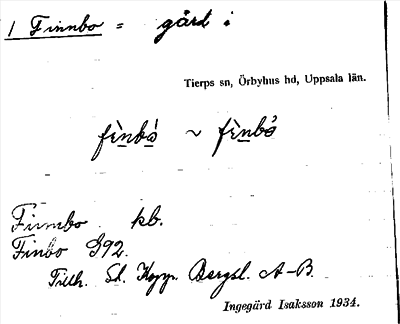 1 Finnbo = gård i
Tierps sn, Örbyhus hd, Uppsala län.
fìnbó ~ fìnbó
Finnbo kb.
Finbo G92.
Tillh. St. Kopp. Bergsl. A-B
Ingegärd Isaksson 1934.